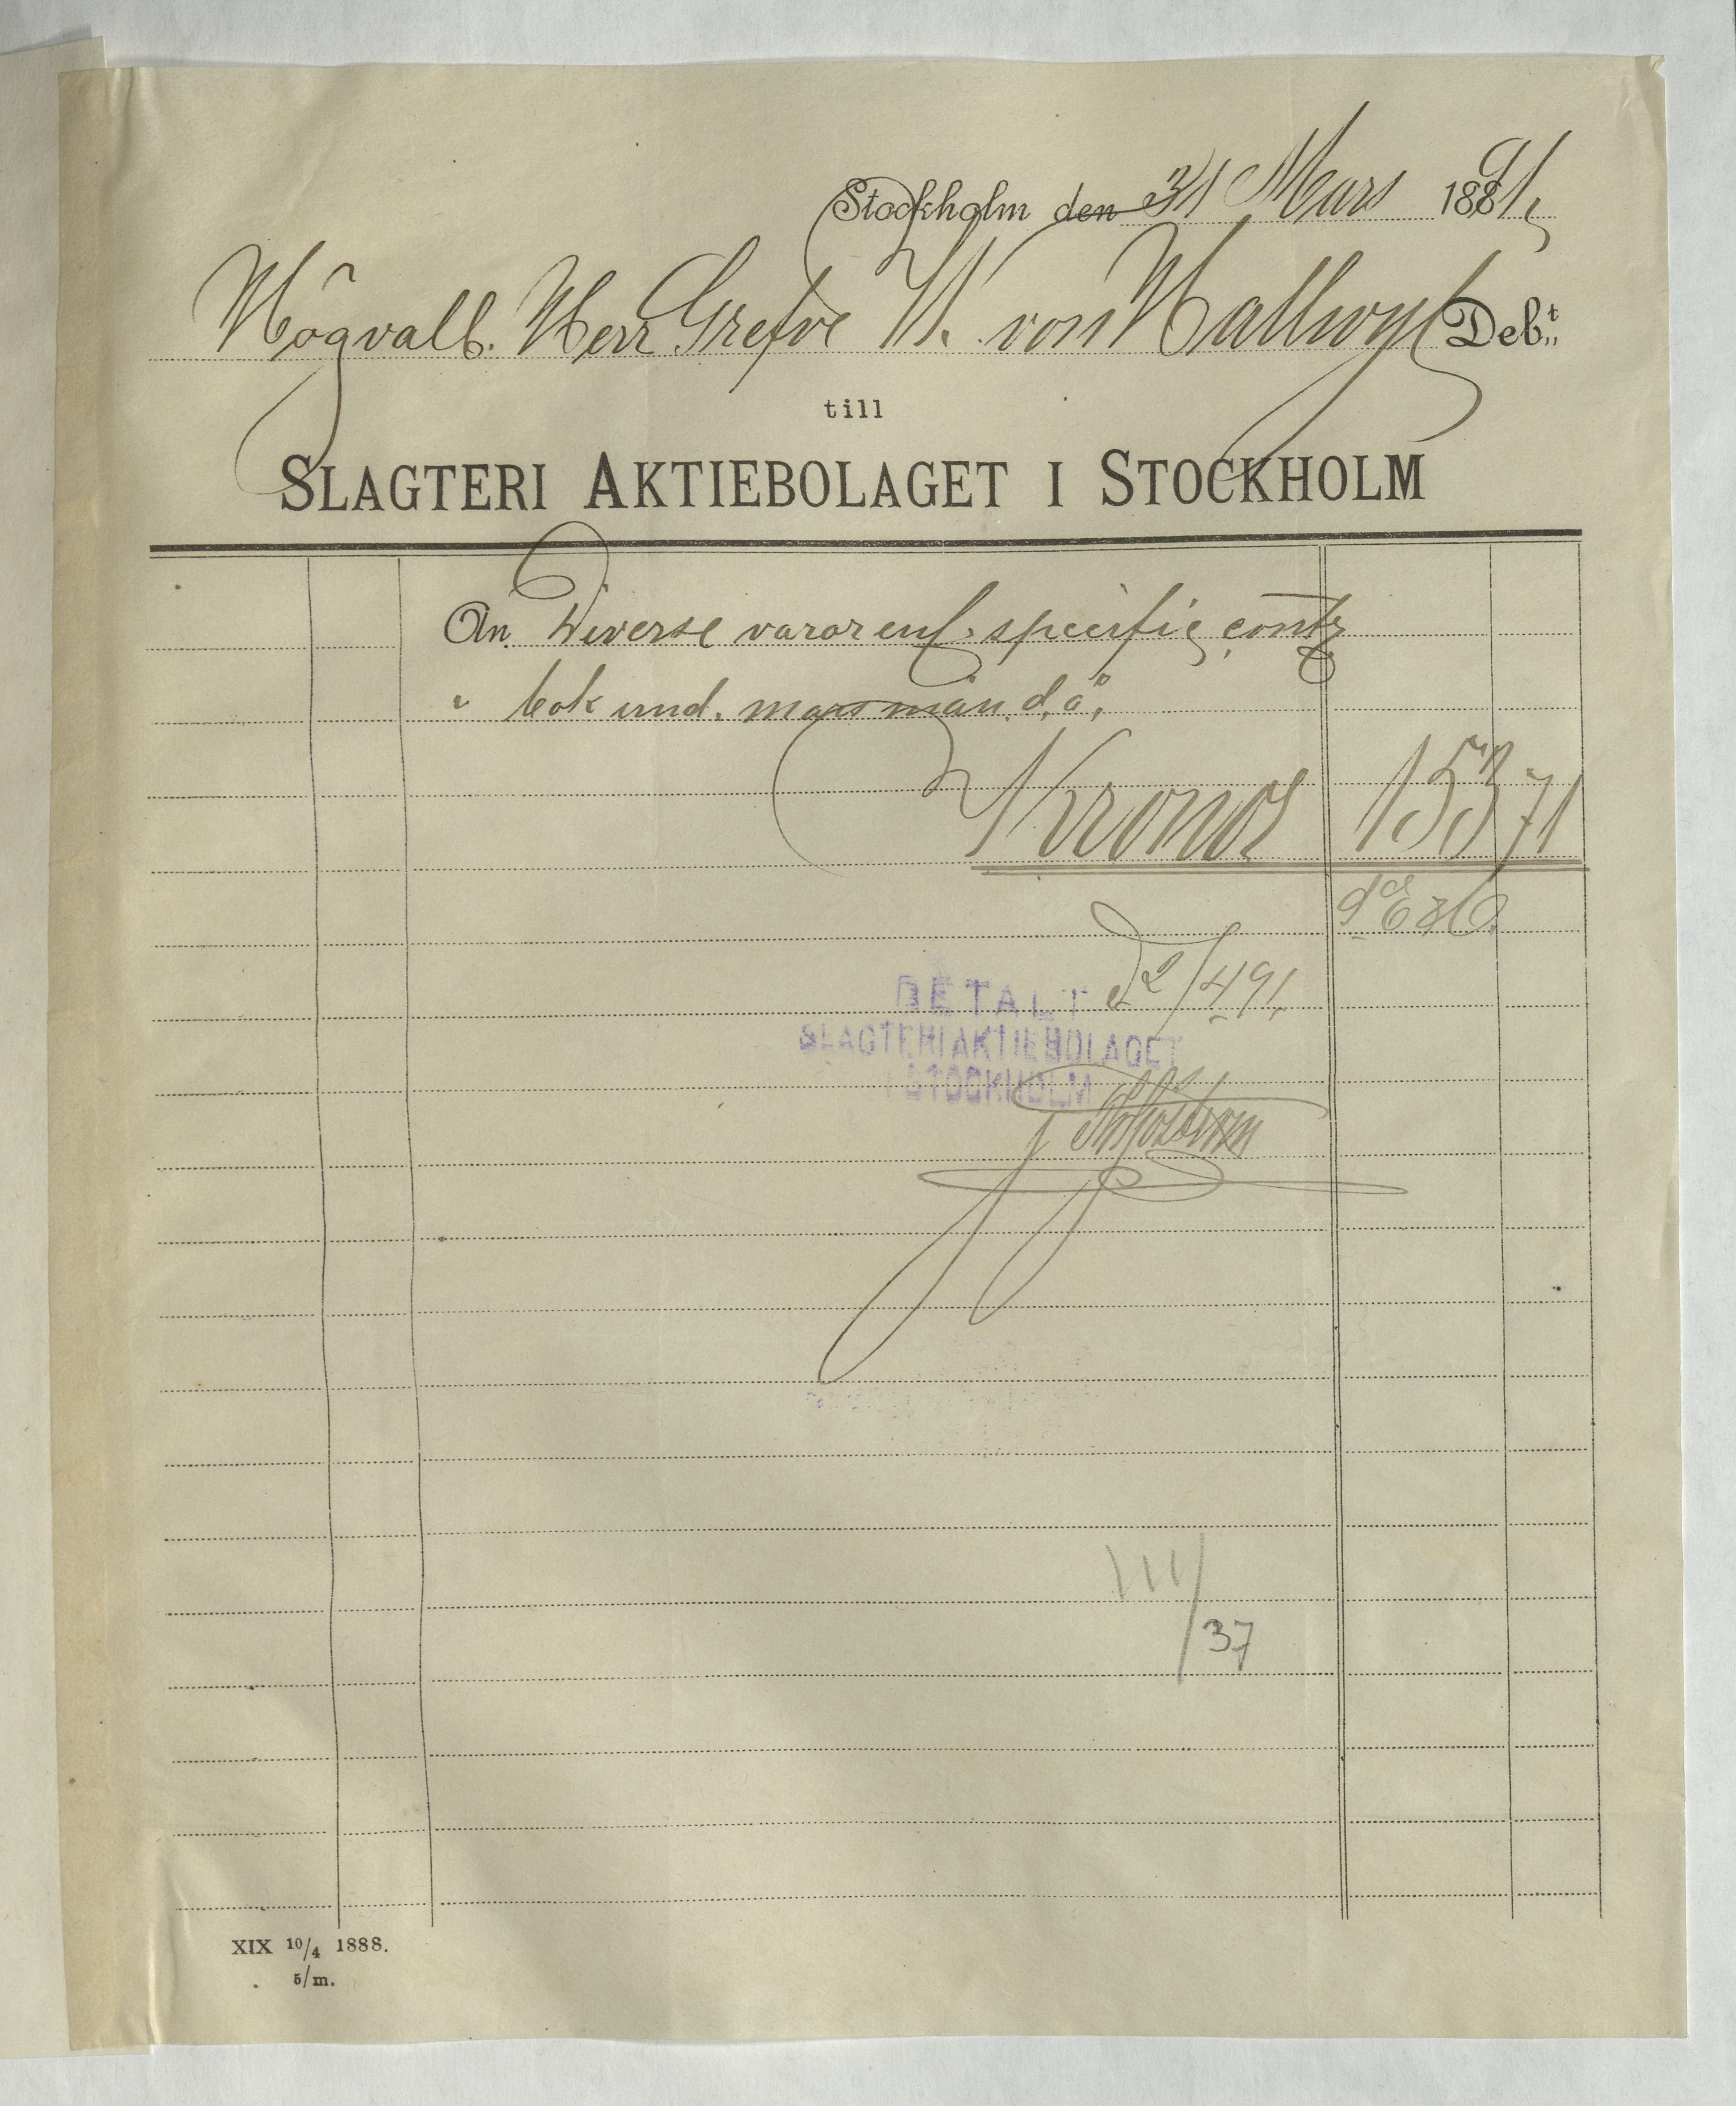 Stockholm den 31 Mars 1891.
Högvälb. Herr Grefve W. von Hallwyl Deb:t
till
SLAGTERI AKTIEBOLAGET I STOCKHOLM
An Diverse varor enl. specific contr
" bok und. mars mån. d. å.
Kronor 153 71
BETALT d 2/4 91.
SLAGTERIAKTIEBOLAGET
I STOCKHOLM
III/37
XIX 10/4 1888.
5/m.